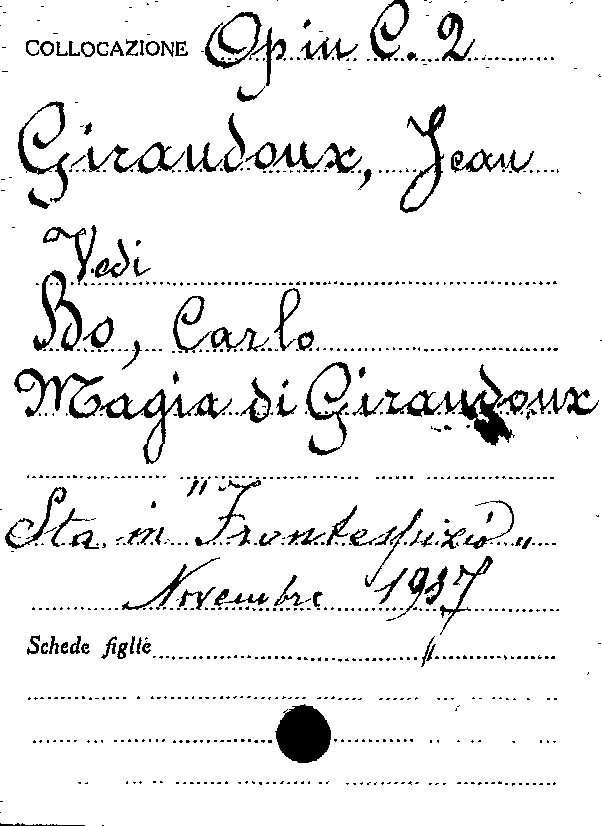 COLLOCAZIONE Op in C. 2
Giraudoux, Jean
Vedi
Bo, Carlo
Magia di Giraudoux
Sta in "Frontespizio"
Novembre 1937
Schede figlie "